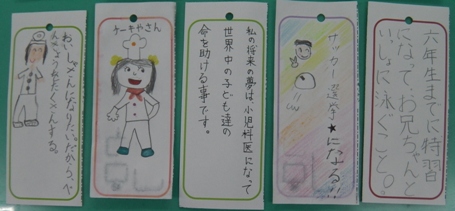 おいしゃさんになりたいだから、べ
んきょうをたくさんする。
ケーキやさん
私の将来の夢は小児科医になって
世界中の子ども達の
命を助ける事です。
サッカー選手★になる!!
六年生までに特習
になって、お兄ちゃんと
いっしょに泳ぐこと。